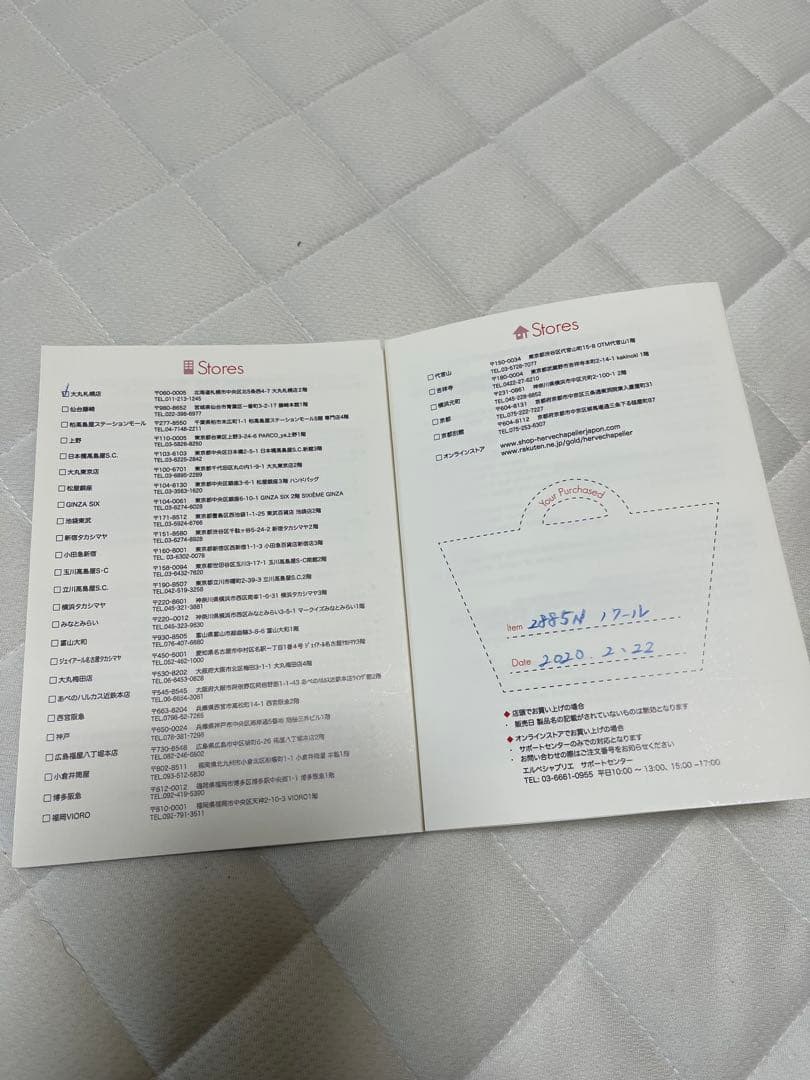 Stores
大丸札幌店 〒060-0005 北海道札幌市中央区北5条西4-7 大丸札幌店2階
TEL.011-213-1245
仙台藤崎 〒980-8652 宮城県仙台市青葉区一番町3-2-17 藤崎本館1階
TEL.022-398-6977
柏高島屋ステーションモール 〒277-8550 千葉県柏市末広町1-1 柏高島屋ステーションモールS館 専門店4階
TEL.04-7148-2211
上野 〒110-0005 東京都台東区上野3-24-6 PARCO_ya上野1階
TEL.03-5826-8250
日本橋髙島屋S.C. 〒103-6103 東京都中央区日本橋2-5-1 日本橋髙島屋S.C.新館3階
TEL.03-6225-2842
大丸東京店 〒100-6701 東京都千代田区丸の内1-9-1 大丸東京店2階
TEL.03-6895-2289
松屋銀座 〒104-8130 東京都中央区銀座3-6-1 松屋銀座3階 ハンドバッグ
TEL.03-3563-1620
GINZA SIX 〒104-0061 東京都中央区銀座6-10-1 GINZA SIX 2階 SIXIÈME GINZA
TEL.03-6274-6028
池袋東武 〒171-8512 東京都豊島区西池袋1-1-25 東武百貨店 池袋店2階
TEL.03-5924-6766
新宿タカシマヤ 〒151-8580 東京都渋谷区千駄ヶ谷5-24-2 新宿タカシマヤ2階
TEL.03-6274-8928
小田急新宿 〒160-8001 東京都新宿区西新宿1-1-3 小田急百貨店新宿店3階
TEL. 03-6302-0076
玉川髙島屋S・C 〒158-0094 東京都世田谷区玉川3-17-1 玉川髙島屋S・C南館2階
TEL.03-6432-7620
立川髙島屋S.C. 〒190-8507 東京都立川市曙町2-39-3 立川髙島屋S.C.2階
TEL.042-519-3258
横浜タカシマヤ 〒220-8601 神奈川県横浜市西区南幸1-6-31 横浜タカシマヤ3階
TEL.045-321-3881
みなとみらい 〒220-0012 神奈川県横浜市西区みなとみらい3-5-1 マークイズみなとみらい1階
TEL.045-323-9630
富山大和 〒930-8505 富山県富山市総曲輪3-8-6 富山大和1階
TEL.076-407-6680
ジェイアール名古屋タカシマヤ 〒450-6001 愛知県名古屋市中村区名駅一丁目1番4号 ジェイアール名古屋タカシマヤ3階
TEL.052-462-1000
大丸梅田店 〒530-8202 大阪府大阪市北区梅田3-1-1 大丸梅田店4階
TEL.06-6453-0828
あべのハルカス近鉄本店 〒545-8545 大阪府大阪市阿倍野区阿倍野筋1-1-43 あべのハルカス近鉄本店ウイング館2階
TEL.06-6654-3061
西宮阪急 〒663-8204 兵庫県西宮市高松町14-1 西宮阪急2階
TEL.0798-62-7265
神戸 〒650-0024 兵庫県神戸市中央区海岸通5番地
TEL.078-381-7298
広島福屋八丁堀本店 〒730-8548 広島県広島市中区胡町6-26 福屋八丁堀本店2階
TEL.082-246-6602
小倉井筒屋 〒802-8511 福岡県北九州市小倉北区船場町1-1 小倉井筒屋 本館1階
TEL.093-512-5830
博多阪急 〒812-0012 福岡県福岡市博多区博多駅中央街1-1 博多阪急1階
TEL.092-419-5390
福岡VIORO 〒810-0001 福岡県福岡市中央区天神2-10-3 VIORO1階
TEL.092-791-3511
Stores
代官山 〒150-0034 東京都渋谷区代官山町15-8 OTM代官山1階
TEL.03-5728-7077
吉祥寺 〒180-0004 東京都武蔵野市吉祥寺本町2-14-1 kakinoki 1階
TEL.0422-27-6210
横浜元町 〒231-0861 神奈川県横浜市中区元町2-100-1 2階
TEL.045-228-8852
京都 〒604-8131 京都府京都市中京区三条通東洞院東入菱屋町31
TEL.075-222-7227
京都別館 〒604-8112 京都府京都市中京区柳馬場通三条下る槌屋町97
TEL.075-253-6307
オンラインストア www.shop-hervechapelierjapon.com
www.rakuten.ne.jp/gold/hervechapelier
Your Purchased
Item 2885N ノワール
Date 2020.2.22
◆店頭でお買い上げの場合
・ 販売日 製品名の記載がされていないものは無効となります
◆オンラインストアでお買い上げの場合
・ サポートセンターのみでの対応となります
・ お問い合わせの際はご注文番号をお知らせください
エルベシャプリエ サポートセンター
TEL: 03-6661-0955 平日10:00〜13:00、15:00〜17:00